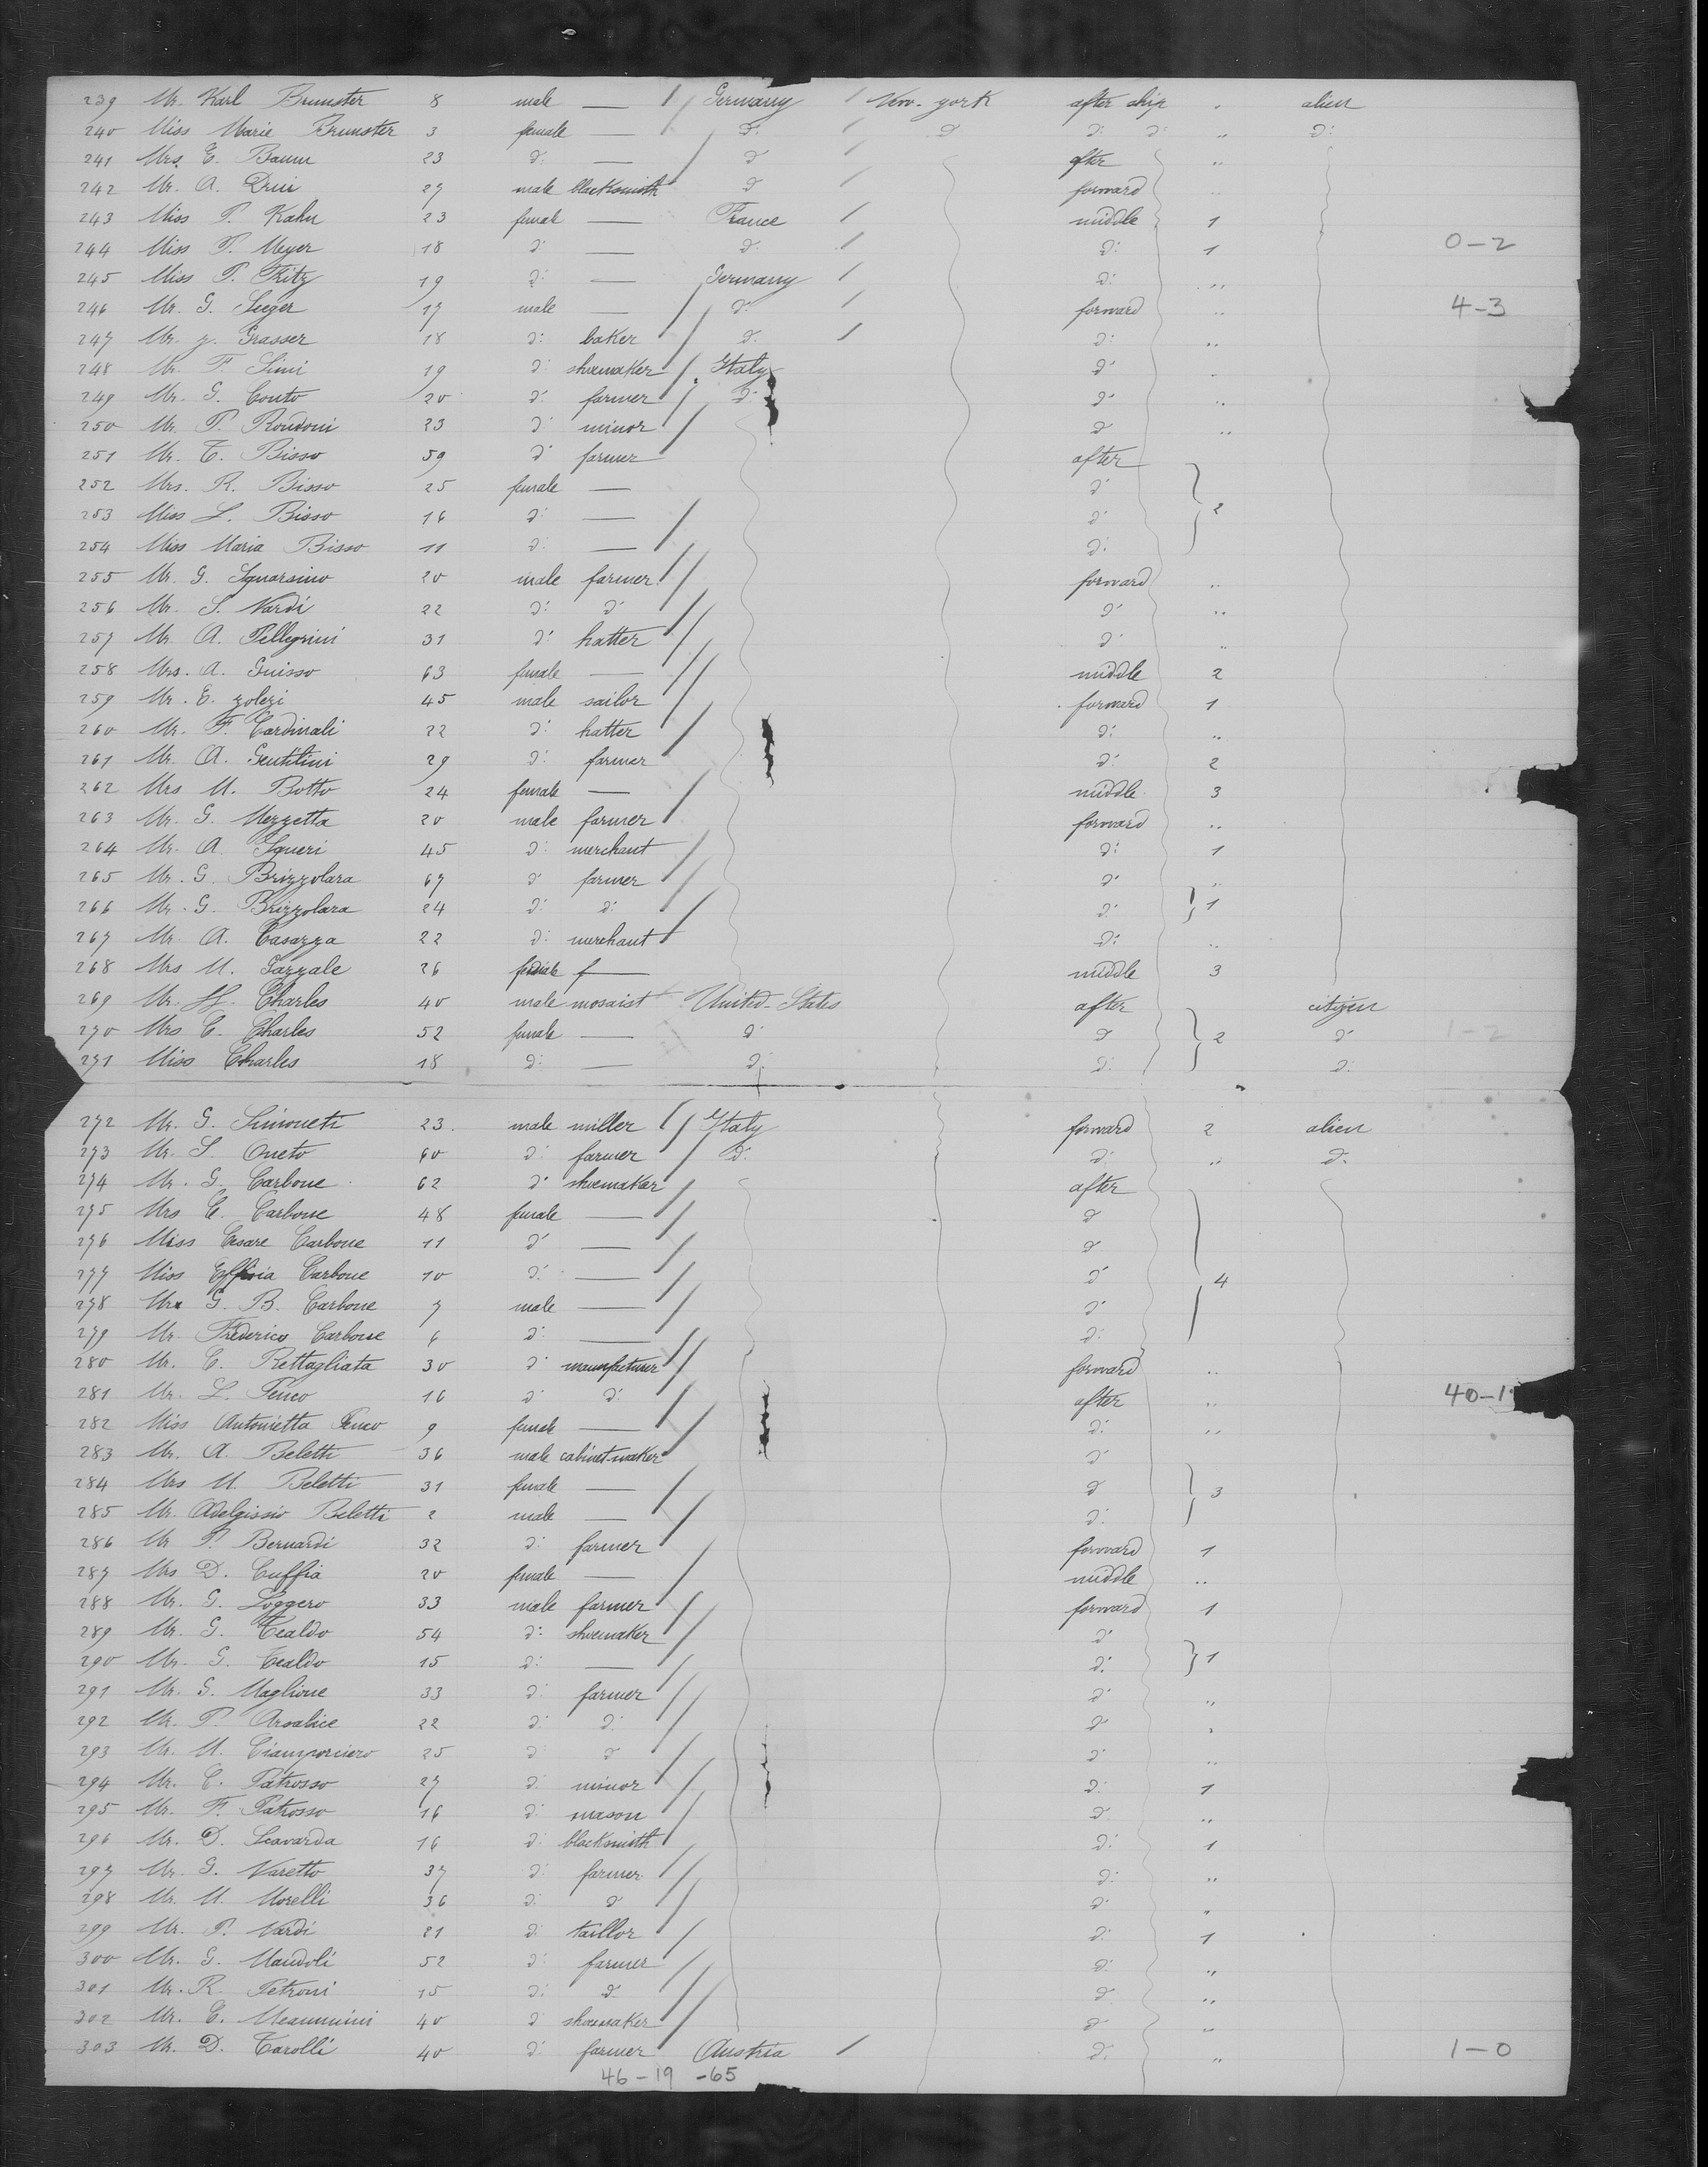 239 Mr. Karl Brunster 8 male — Germany New-york after ship " alien
240 Miss Marie Brunster 3 female — d: d d: d: " d:
241 Mrs. E. Baum 23 d: — d after "
242 Mr. A. Drui 27 male blacksmith d forward "
243 Miss P. Kahn 23 female — France middle 1
244 Miss P. Meyer 18 d: — d: d: 1 0-2
245 Miss P. Fritz 19 d: — Germany d: "
246 Mr. G. Seeger 17 male — d: forward " 4-3
247 Mr. y. Grasser 18 d: baker d: d: "
248 Mr. F. Simi 19 d: shoemaker Italy d: "
249 Mr. G. Conto 20 d: farmer d: d: "
250 Mr. P. Rondoni 23 d: minor d "
251 Mr. T. Bisso 59 d: farmer after
252 Mrs. R. Bisso 25 female — d:
253 Miss L. Bisso 16 d: — d: 2
254 Miss Maria Bisso 11 d: — d:
255 Mr. G. Squarsino 20 male farmer forward "
256 Mr. S. Nardi 22 d: d: d: "
257 Mr. A. Pellegrini 31 d: hatter d: "
258 Mrs. A. Guisso 63 female — middle 2
259 Mr. E. zolezi 45 male sailor forward 1
260 Mr. F. Cardinali 22 d: hatter d: "
261 Mr. A. Gentilini 29 d: farmer d: 2
262 Mrs M. Botto 24 female — middle 3
263 Mr. G. Mezzetta 20 male farmer forward "
264 Mr. A. Sgueri 45 d: merchant d: 1
265 Mr. G. Brizzolara 67 d: farmer d: "
266 Mr. G. Brizzolara 24 d: d: d: 1
267 Mr. A. Casazza 22 d: merchant d: "
268 Mrs M. Gazzale 26 female — middle 3
269 Mr. H. Charles 40 male mosaist United-States after citizen
270 Mrs C. Charles 52 female — d: d 2 d: 1-2
271 Miss Charles 18 d: — d: d: d:
272 Mr. G. Simoneti 23. male miller Italy forward 2 alien
273 Mr. S. Oneto 60 d: farmer d: d: " d:
274 Mr. G. Carbone 62 d: shoemaker after
275 Mrs C. Carbone 48 female — d
276 Miss Cesare Carbone 11 d: — d
277 Miss Carbone 10 d: — d: 4
278 Mr G. B. Carbone 7 male — d:
279 Mr. Frederico Carbone 6 d: — d:
280 Mr. C. Rettagliata 30 d: manufacturer forward "
281 Mr. L. Penco 16 d: d: after " 40-1
282 Miss Antonietta Penco 9 female — d: "
283 Mr. A. Beletti 36 male cabinet-maker d:
284 Mrs M. Beletti 31 female — d 3
285 Mr. Adelgissio Beletti 2 male — d:
286 Mr P. Bernardi 32 d: farmer forward 1
287 Mrs D. Cuffia 20 female — middle "
288 Mr. G. Loggero 33 male farmer forward 1
289 Mr. G. Tealdo 54 d: shoemaker d:
290 Mr. G. Tealdo 15 d: — d: 1
291 Mr. G. Maglione 33 d: farmer d: "
292 Mr. P. 22 d: d: d: "
293 Mr. M. 25 d: d d: "
294 Mr. C. Patrosso 27 d: minor d: 1
295 Mr. F. Patrosso 16 d: mason d: "
296 Mr. D. Scavarda 16 d: blacksmith d: 1
297 Mr. G. Varetto 37 d: farmer d: "
298 Mr. M. Morelli 36 d: d: d: "
299 Mr. P. Nardi 21 d: taillor d: 1
300 Mr. G. Mandoli 52 d: farmer d: "
301 Mr. R. Petroni 15 d: d: d: "
302 Mr. C. 40 d shoemaker d: "
303 Mr. D. Tarolli 40 d: farmer Austria d: " 1-0
46-19-65